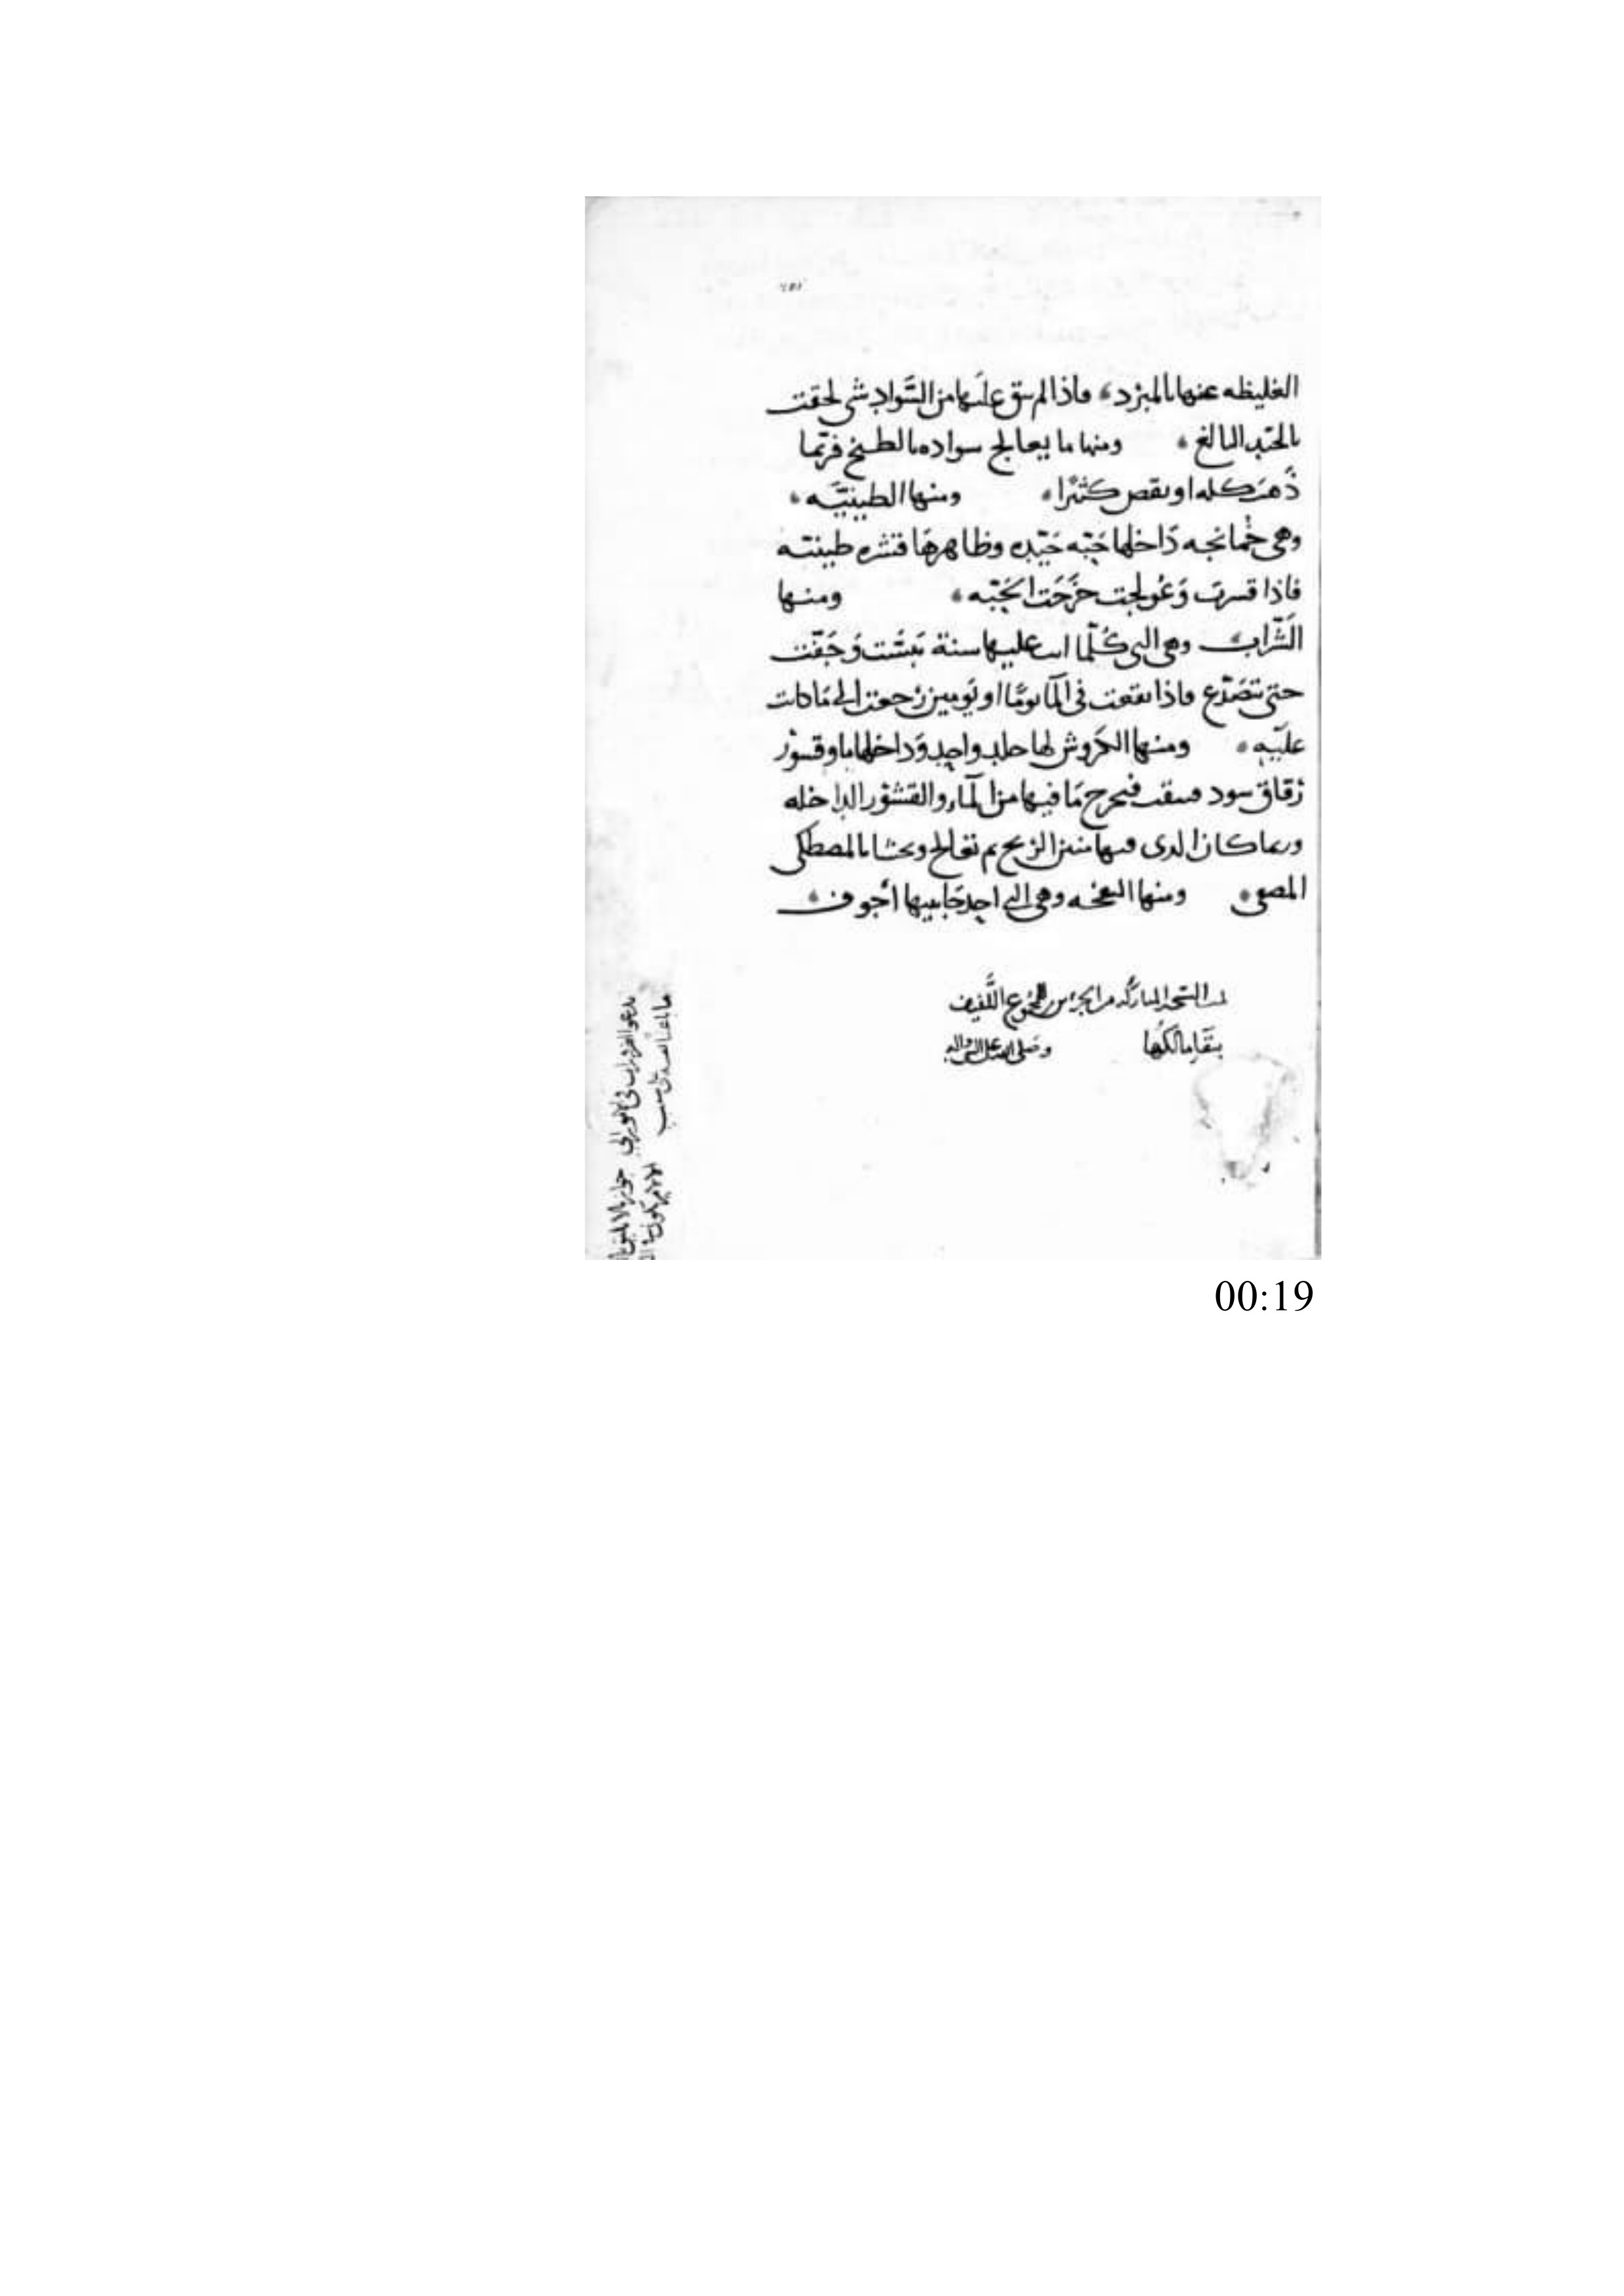 الغليظه عنها بالمبرد فاذا لم يبق عليها من السواد شى لحقت
بالجيد البالغ ومنها ما يعالج سواده بالطبخ فربما
ذهب كله او نقص كثيرا ومنها الطينيّه
وهى داخلها حبّه جيّده وظاهرها قشره طينيّه
فاذا قسرت وعولجت خرجت الحبّه ومنها
الشراب وهى التى كلّما اتت عليها سنة يبست وجفّت
حتى تتصدّع فاذا نقعت فى المآ يومًا او يومين رجعت الى ما كانت
عليه ومنها الكروش لها جلد واحد وداخلها ما وقسور
رقاق سود فيخرج ما فيها من المآء والقشور الداخله
وربما كان الذى فيها منتن الريح ثم تعالج وتحشا بالمصطكى
المصفى ومنها وهى التى احد جانبيها أجوف
النسخه المباركه من المجموع اللّفيف
بقا مالكها وصلى الله على النبى واله
00:19